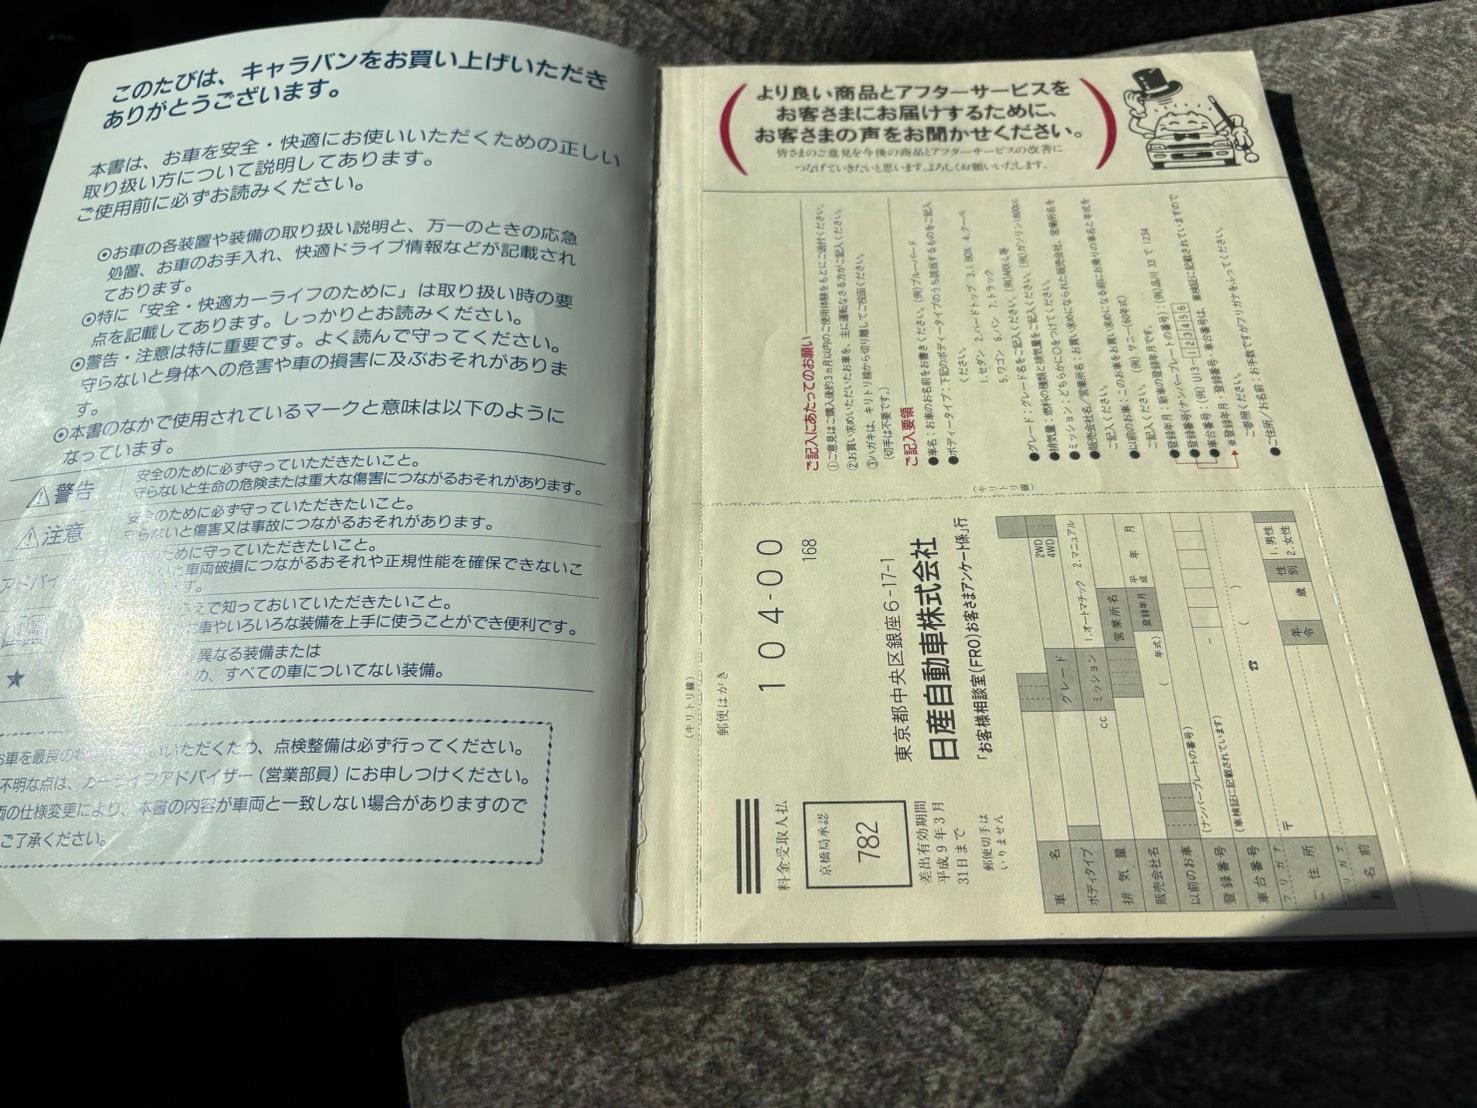 このたびは、キャラバンをお買い上げいただき
ありがとうございます。
本書は、お車を安全・快適にお使いいただくための正しい
取り扱い方について説明してあります。
ご使用前に必ずお読みください。
⊙お車の各装置や装備の取り扱い説明と、万一のときの応急
処置、お車のお手入れ、快適ドライブ情報などが記載され
ております。
⊙特に「安全・快適カーライフのために」は取り扱い時の要
点を記載してあります。しっかりとお読みください。
⊙警告・注意は特に重要です。よく読んで守ってください。
守らないと身体への危害や車の損害に及ぶおそれがありま
す。
⊙本書のなかで使用されているマークと意味は以下のように
なっています。
⚠警告
安全のために必ず守っていただきたいこと。
守らないと生命の危険または重大な傷害につながるおそれがあります。
⚠注意
安全のために必ず守っていただきたいこと。
守らないと傷害又は事故につながるおそれがあります。
アドバイ
ために守っていただきたいこと。
車両破損につながるおそれや正規性能を確保できないこ
です。
えで知っておいていただきたいこと。
車やいろいろな装備を上手に使うことができ便利です。
★
異なる装備または
め、すべての車についてない装備。
お車を最良の いただくため、点検整備は必ず行ってください。
不明な点は、カーライフアドバイザー(営業部員)にお申しつけください。
両の仕様変更により、本書の内容が車両と一致しない場合がありますので
ご了承ください。
より良い商品とアフターサービスを
お客さまにお届けするために、
お客さまの声をお聞かせください。
皆さまのご意見を今後の商品とアフターサービスの改善に
つなげていきたいと思います。よろしくお願いいたします。
ご記入にあたってのお願い
①ご意見はご購入後約3ヵ月以内のご使用体験をもとにご送付ください。
②お買い求めいただいたお車を、主に運転なさる方がご記入ください。
③ハガキは、キリトリ線から切り離してご投函ください。
(切手は不要です。)
ご記入要領
●車名:お車のお名前をお書きください。(例)ブルーバード
●ボディータイプ:下記のボディータイプのうち該当するものをご記入
ください。
1.セダン 2.ハードトップ 3.1 BOX 4.クーペ
5.ワゴン 6.バン 7.トラック
●グレード:グレード名をご記入ください。(例)ARX-L等
●排気量:燃料の種類と排気量をご記入ください。(例)ガソリン1800cc
●ミッション:どちらかに○をつけてください。
●販売会社名/営業所名:お買い求めになられた販売会社、営業所名を
ご記入ください。
●以前のお車:このお車をお買い求めになる前にお乗りの車名と年式を
ご記入ください。(例)サニー(60年式)
●登録年月:新車の登録年月です。
●登録番号(ナンバープレートの番号):(例)品川 33 て 1234
●車台番号:(例) U13-123456
※登録年月・登録番号・車台番号は、車検証に記載されていますので
ご参照ください。
●ご住所/お名前:お手数ですがフリガナをふってください。
(キリトリ線)
(キリトリ線)
郵便はがき
104-00
168
東京都中央区銀座6-17-1
日産自動車株式会社
「お客様相談室(FRO)お客さまアンケート係」行
料金受取人払
京橋局承認
782
差出有効期間
平成9年3月
31日まで
郵便切手は
いりません
車名
2WD
4WD
ボディタイプ
グレード
排気量
cc
ミッション
1.オートマチック 2.マニュアル
販売会社名
営業所名
以前のお車
( 年式)
登録年月
平成 年 月
登録番号
(ナンバープレートの番号)
車台番号
(車検証に記載されています)
フリガナ
ご住所
〒
☎ ( )
フリガナ
お名前
年令
歳
性別
1.男性
2.女性